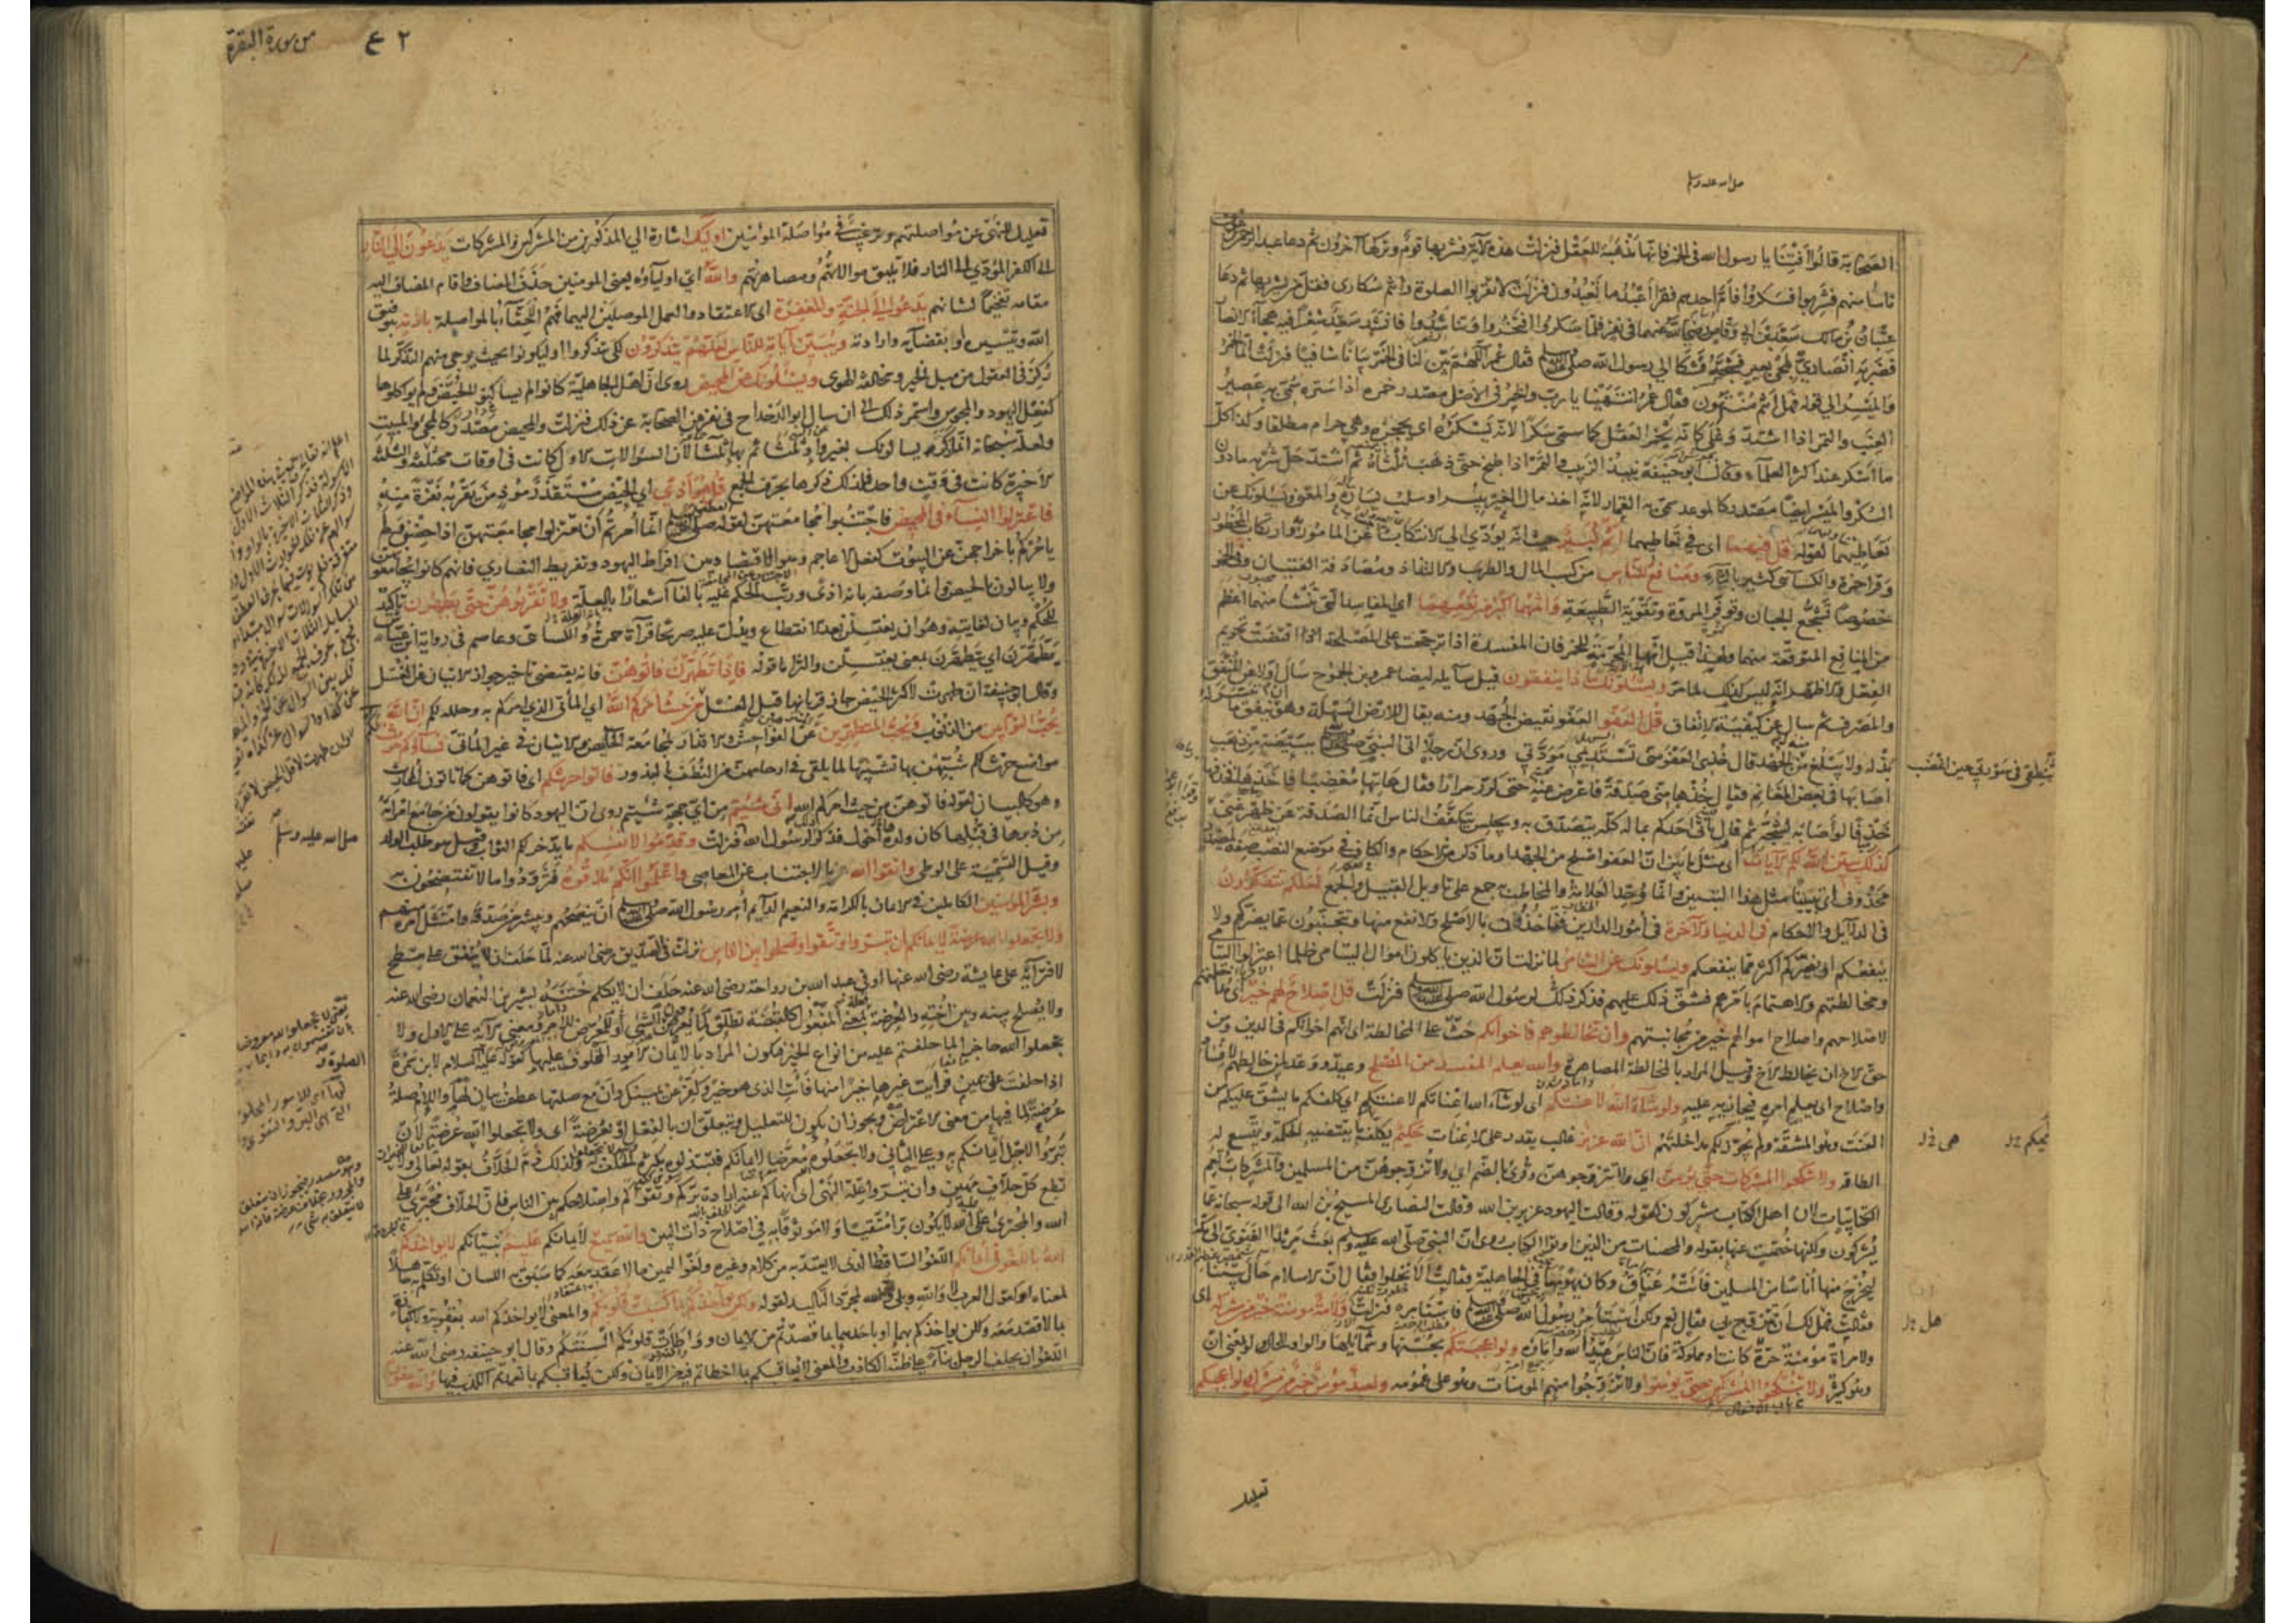 صلى الله عليه وسلم
الصحابة قالوا أفتنا يا رسول الله في الخمر فانها مذهبة للعقل فنزلت هذه الآية فشربها قوم وتركها آخرون ثم دعا عبد الرحمن بن عوف
ناسا منهم فشربوا فسكروا فأم احدهم فقرأ أعبد ما تعبدون فنزلت لا تقربوا الصلوة وانتم سكارى فقل من يشربها ثم دعا
عتبان بن مالك سعد بن ابي وقاص رضي الله عنهما في نفر فلما سكروا افتخروا وتناشدوا فانشد سعد شعرا فيه هجاء الانصار
فضربه أنصاري بلحى بعير فشجه فشكا الي رسول الله صلى الله عليه وسلم فقال عمر اللهم بين لنا في الخمر بيانا شافيا فنزلت انما الخمر
والميسر الي قوله فهل أنتم منتهون فقال عمر انتهينا يا رب والخمر في الاصل مصدر خمره اذا ستره سمي به عصير
العنب والتمر اذا اشتد وغلى كانه يخمر العقل كما سمى سكرا لانه يسكره اي يحجزه وهي حرام مطلقا وكذا كل
ما اسكر عند اكثر العلماء وقال ابو حنيفة نبيذ الزبيب والتمر اذا طبخ حتى ذهب ثلثاه ثم اشتد حل شربه ما دون
السكر والميسر ايضا مصدر كالموعد سمى به القمار لانه اخذ مال الغير بيسر او سلب يساره والمعنى يسئلونك عن
تعاطيهما لقوله قل فيهما اى في تعاطيهما اثم كبير من حيث انه يؤدي الي الانتكاب عن المامور وارتكاب المحظور
وقرأ حمزة والكسائي كثير بالثاء ومنافع للناس من كسب المال والطرب والالتذاذ ومصادقة الفتيان وفي الخمر
خصوصا تشجع الجبان وتوفر المروة وتقوية الطبيعة واثمهما اكبر من نفعهما اي المفاسد التي تنشأ منهما اعظم
من المنافع المتوقعة منهما ولهذا قيل انها المحرمة للخمر فان المفسدة اذا ترجحت على المصلحة اقتضت تحريم
الفعل والاظهر انه ليس كذلك لما مر ويسئلونك ماذا ينفقون قيل سايله ايضا عمرو بن الجموح سأل اولا عن المنفق
والمصرف ثم سال عن كيفية الانفاق قل العفو العفو نقيض الجهد ومنه يقال للارض السهلة وهو ان ينفق ما تيسر له
بذله ولا يبلغ منه الجهد قال خذي العفو مني تستديمي مودتي وروى ان رجلا اتى النبي صلى الله عليه وسلم ببيضة من ذهب
تنطقي في سورتي حين اغضب
اصابها في بعض المغانم فقال خذها مني صدقة فاعرض عنه حتى كرر مرارا فقال هاتها مغضبا فاخذها فحذفها
حذفا لو أصابه لشجه ثم قال يأتي احدكم بماله كله يتصدق به ويجلس يتكفف الناس انما الصدقة عن ظهر غنى
كذلك يبين الله لكم الآيات اى مثل ما بين ان العفو اصلح من الجهد او ما ذكر من الاحكام والكاف في موضع النصب صفة لمصدر
محذوف اي تبيينا مثل هذا التبيين وانما وحد العلامة والمخاطب جمع على تاويل القبيل والجمع لعلكم تتفكرون
في الدلايل والاحكام في الدنيا والآخرة في أمور الدارين فتاخذون بالاصلح والانفع منها وتجتنبون عما يضركم ولا
ينفعكم او يضركم أكثر مما ينفعكم ويسئلونك عن اليتامى لما نزلت ان الذين ياكلون اموال اليتامى ظلما اعتزلوا اليتامى
ومخالطتهم والاهتمام بامرهم فشق ذلك عليهم فذكر ذلك لرسول الله صلى الله عليه وسلم فنزلت قل اصلاح لهم خير اى مداخلتهم
لاصلاحهم واصلاح اموالهم خير من مجانبتهم وان تخالطوهم فاخوانكم حث على المخالطة اى انهم اخوانكم في الدين ومن
حق الاخ ان يخالط الاخ وقيل المراد بالمخالطة المصاهرة والله يعلم المفسد من المصلح وعيد ووعد لمن خالطهم لافساد
واصلاح اى يعلم امره فيجازيه عليه ولو شاء الله لاعنتكم اى لو شاء الله اعناتكم لاعنتكم اي كلفكم ما يشق عليكم من
العنت وهو المشقة ولم يجوز لكم مداخلتهم ان الله عزيز غالب يقدر على الاعنات حكيم يحكم ما يقتضيه الحكمة ويتسع له
الطاقة ولا تنكحوا المشركات حتى يؤمن اي ولا تتزوجوهن وقرئ بالضم اي ولا تزوجوهن من المسلمين والمشركات تعم
الكتابيات لان اهل الكتاب مشركون لقوله وقالت اليهود عزير بن الله وقالت النصارى المسيح بن الله الى قوله سبحانه عما
يشركون ولكنها خصت عنها بقوله والمحصنات من الذين اوتوا الكتاب روى ان النبي صلى الله عليه وسلم بعث مرثدا الغنوي الى مكة
ليخرج منها أناسا من المسلمين فأتته عناق وكان يهويها في الجاهلية فقالت ألا تخلوا فقال ان الاسلام حال بيننا
فقالت فهل لك ان تتزوج بي فقال نعم ولكن استأمر رسول الله صلى الله عليه وسلم فاستامره فنزلت ولامة مؤمنة خير من مشركة اى
ولامرأة مؤمنة حرة كانت او مملوكة فان الناس عبيد الله واماؤه ولو اعجبتكم بحسنها وشمائلها والواو للحال ولو بمعنى ان
وهو كثير ولا تنكحوا المشركين حتى يؤمنوا ولا تزوجوا منهم المؤمنات وهو على عمومه ولعبد مؤمن خير من مشرك ولو اعجبكم
تعليل
من سورة البقرة
٢ ع
تعليل للنهي عن مواصلتهم وترغيب في مواصلة المؤمنين اولئك اشارة الي المذكورين من المشركين والمشركات يدعون الي النار
الى الكفر المؤدي الى النار فلا يليق موالاتهم ومصاهرتهم والله اي اولياؤه يعني المومنين حذف المضاف واقام المضاف اليه
مقامه تفخيما لشانهم يدعوا الي الجنة والمغفرة اى الاعتقاد والعمل الموصلين اليهما فهم الاحقاء بالمواصلة باذنه بتوفيق
الله وتيسيره او بقضائه وارادته ويبين آياته للناس لعلهم يتذكرون لكي يتذكروا او ليكونوا بحيث يرجى منهم التذكر لما
ركز في العقول من ميل الخير ومخالفة الهوى ويسئلونك عن المحيض روى ان اهل الجاهلية كانوا لم يساكنوا الحيض ولم يواكلوها
كفعل اليهود والمجوس واستمر ذلك الى ان سال ابو الدحداح في نفر من الصحابة عن ذلك فنزلت والمحيض مصدر كالمجئ والمبيت
ولعله سبحانه انما ذكر يسالونك بغير واو ثلثا ثم بها ثلثا لان السؤالات الاول كانت في اوقات مختلفة والثلث
الاخيرة كانت في وقت واحد فلذلك ذكرها بحرف الجمع قل هو أذى اي الحيض مستقذر مؤذ من يقربه نفرة منه
فاعتزلوا النساء في المحيض فاجتنبوا مجامعتهن لقوله صلى الله عليه وسلم انما أمرتم أن تعتزلوا مجامعتهن اذا حضن ولم
يامركم باخراجهن عن البيوت كفعل الاعاجم وهو الاقتصاد بين افراط اليهود وتفريط النصاري فانهم كانوا يجامعون
ولا يبالون بالحيض وانما وصفه بانه اذى ورتب الحكم عليه بالفا اشعارا بالعلة ولا تقربوهن حتى يطهرن تاكيد
للحكم وبيان لغايته وهو ان يغتسلن بعد الانقطاع ويدل عليه صريحا قراءة حمزة والكسائي وعاصم في رواية ابن عياش
يتطهرن اي يتطهرن بمعنى يغتسلن والتزاما قوله فاذا تطهرن فاتوهن فانه يقتضي تاخير جواز الاتيان عن الغسل
وقال ابو حنيفة ان طهرت لاكثر الحيض جاز قربانها قبل الغسل من حيث أمركم الله اي المأتى الذي امركم به وحلله لكم ان الله
يحب التوابين من الذنوب ويحب المتطهرين عن الفواحش والاقذار كمجامعة الحايض والاتيان في غير المأتى نساؤكم حرث لكم
مواضع حرث لكم شبههن بها تشبيها لما يلقى في ارحامهن من النطف بالبذور فاتوا حرثكم اى فاتوهن كما تاتون المحارث
وهو كالبيان لقوله فاتوهن من حيث امركم الله انى شئتم من أي جهة شئتم روى ان اليهود كانوا يقولون من جامع امرأته
من دبرها في قبلها كان ولده أحول فذكر لرسول الله فنزلت وقدموا لانفسكم ما يدخر لكم الثواب وقيل هو طلب الولد
صلى الله عليه وسلم
وقيل التسمية على الوطى واتقوا الله بالاجتناب عن المعاصي واعلموا انكم ملاقوه فتزودوا ما لا تفتضحون به
وبشر المؤمنين الكاملين في الايمان بالكرامة والنعيم الدايم أمر رسول الله صلى الله عليه وسلم أن ينصحهم ويبشر من صدقه وامتثل امره منهم
ولا تجعلوا الله عرضة لايمانكم ان تبروا وتتقوا وتصلحوا بين الناس نزلت في الصديق رضى الله عنه لما حلف ان لا ينفق على مسطح
لافترائه على عايشة رضى الله عنها او في عبد الله بن رواحة رضى الله عنه حلف ان لا يكلم ختنه بشير بن النعمان رضى الله عنه
ولا يصلح بينه وبين اخته والعرضة بمعنى المفعول كالقبضة تطلق لما يعرض دون الشئ او للمعرض للامر ومعنى الآية على الاول ولا
تجعلوا الله حاجزا لما حلفتم عليه من انواع الخير فيكون المراد بالايمان الامور المحلوف عليها كقوله عليه السلام لابن سمرة
اذا حلفت على يمين فرأيت غيرها خيرا منها فأت الذى هو خير وكفر عن يمينك وأن مع صلتها عطف بيان لها واللام صلة
عرضة لما فيها من معنى الاعتراض ويجوز ان يكون للتعليل ويتعلق ان بالفعل او بعرضة اى ولا تجعلوا الله عرضة لأن
تبروا لاجل أيمانكم به وعلى الثاني ولا تجعلوه معرضا لايمانكم فتبتذلوه بكثرة الحلف به ولذلك ذم الحلاف بقوله تعالى ولا
تطع كل حلاف مهين وان تبروا علة النهى اى انهاكم عنه ارادة بركم وتقواكم واصلاحكم بين الناس فان الحلاف مجترئ على
الله والمجترئ على الله لا يكون برا متقيا ولا موثوقا به في اصلاح ذات البين والله سميع لايمانكم عليم بنياتكم لا يواخذكم
الله باللغو في أيمانكم اللغو الساقط الذى لا يعتد به من كلام وغيره ولغو اليمين ما لا عقد معه كما سبق به اللسان او تكلم به جاهلا
لمعناه كقول العرب لا والله وبلى والله لمجرد التاكيد لقوله ولكن يؤاخذكم بما كسبت قلوبكم والمعنى لا يواخذكم الله بعقوبة ولا كفارة
بما لا قصد معه ولكن يواخذكم بهما او باحدهما بما قصدتم من الايمان وواطأت قلوبكم السنتكم وقال ابو حنيفة رضى الله عنه
اللغو ان يحلف الرجل بناء على ظنه الكاذب والمعنى لا يعاقبكم بما اخطاتم فيه من الايمان ولكن يعاقبكم بما تعمدتم الكذب فيها والله غفور